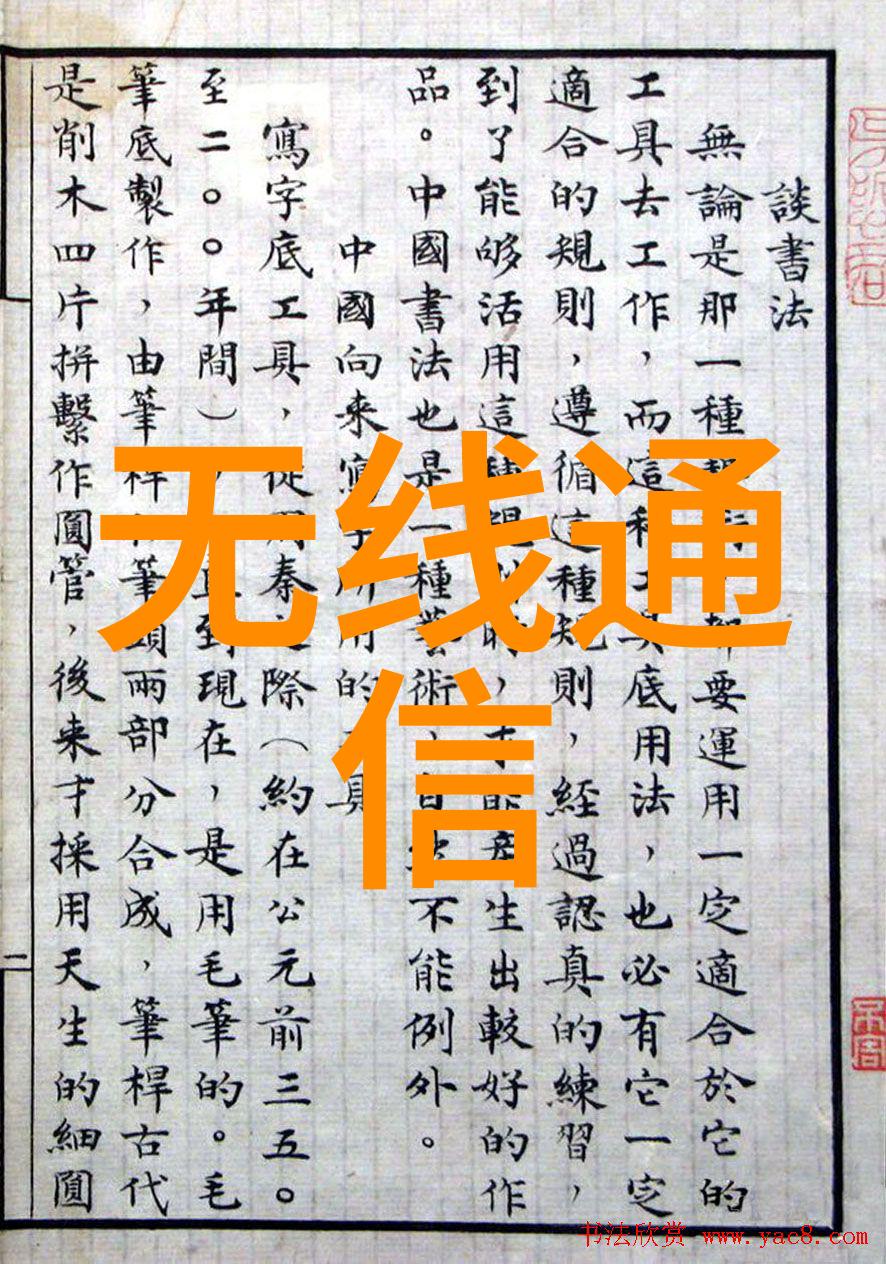 談書法
無論是那一種都要運用一定適合於它的
工具去工作，而這種工具底用法，也必有它一定
適合的規則，遵循這種規則，經過認真的練習，
到了能够活用這種時，才能產生出較好的作
品。中國書法也是一種藝術，自然不能例外。
中國向来寫字所用的工具
寫字底工具，從周秦之際（約在公元前三五〇
至二〇〇年間），直到現在，是用毛筆的。毛
筆底製作，由筆桿筆頭兩部分合成，筆桿古代
是削木四片拼繫作圓管，後来才採用天生的細圓
二
无线通
信
书法欣赏 www.yac8.com